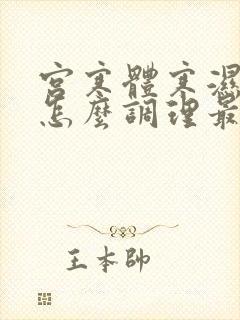 宮寒體寒濕
怎麼調理最
王本帥